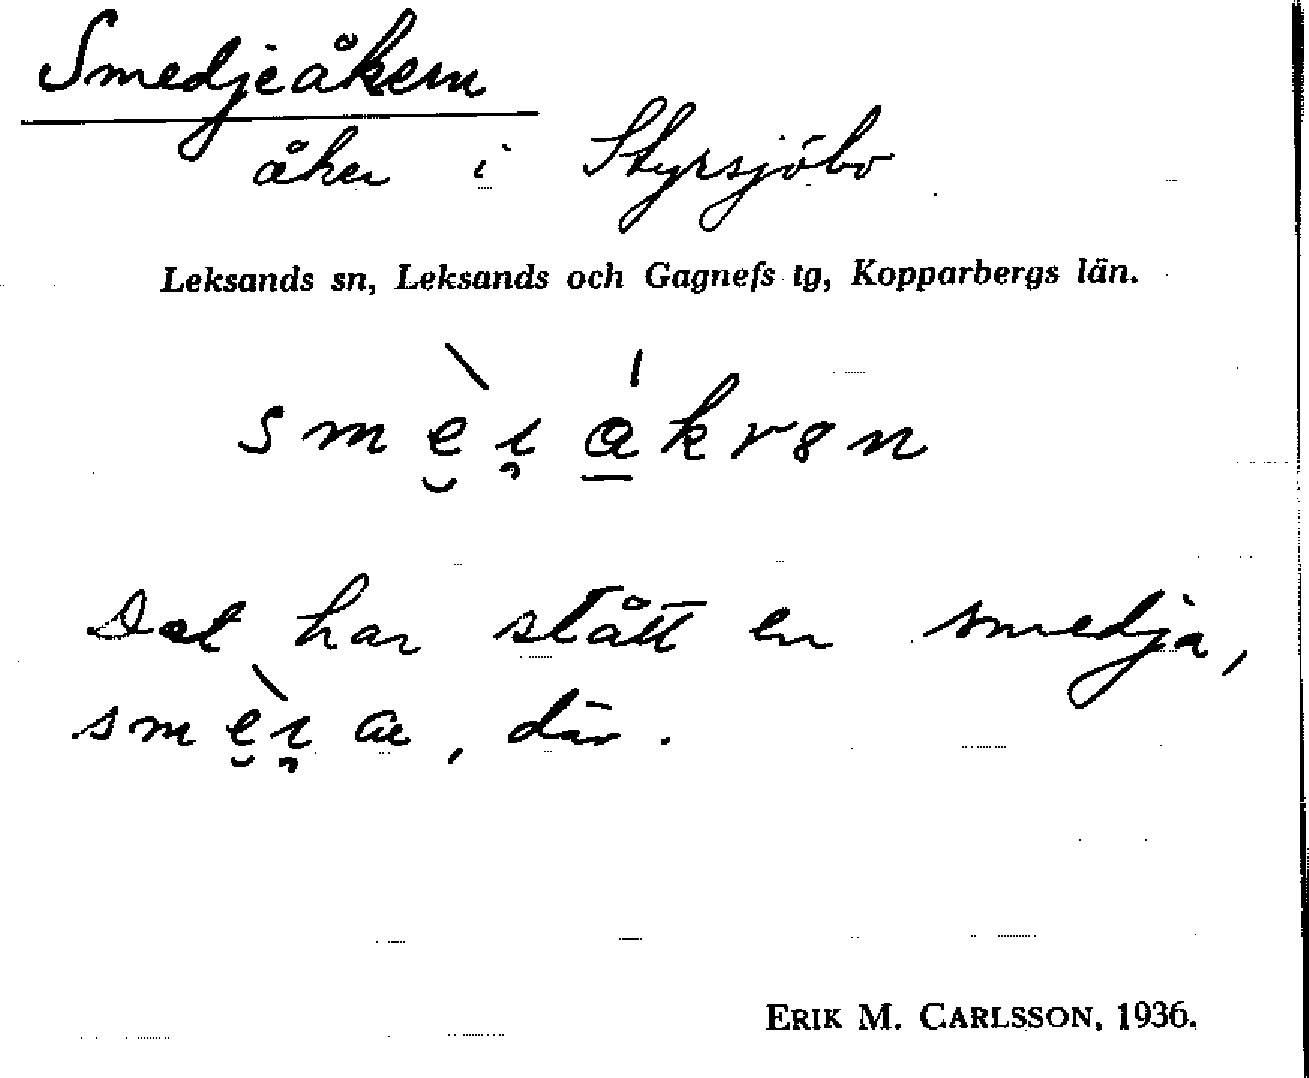 Smedjeåkern
åker i Styrsjöbo
Leksands sn, Leksands och Gagnefs tg, Kopparbergs län.
smè̮ı̯á̱krən
Det har stått en smedja,
smè̮ı̯a, där.
ERIK M. CARLSSON, 1936.